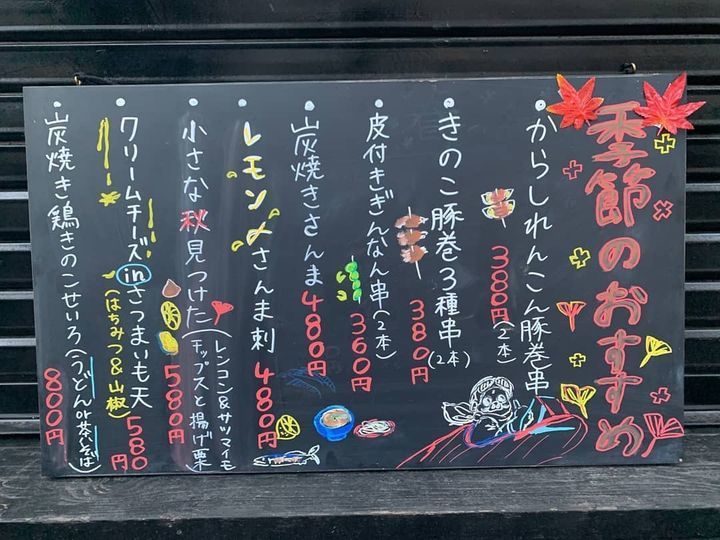 季節のおすすめ
・からしれんこん豚巻串
(2本)
380円
・きのこ豚巻3種串
(2本)
380円
・皮付きぎんなん串(2本)
360円
・炭焼きさんま 480円
・レモン〆さんま刺 480円
・小さな秋見つけた(レンコン&サツマイモ
チップスと揚げ栗)
580円
・クリームチーズinさつまいも天
(はちみつ&山椒)
580円
・炭焼き鶏きのこせいろ(うどんor茶そば)
800円